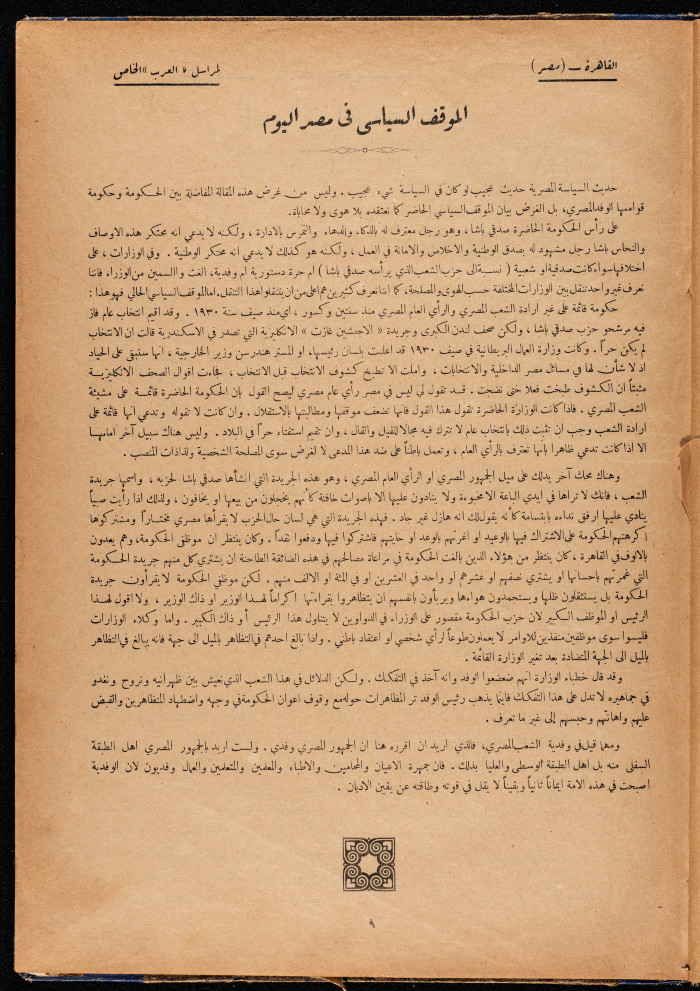 القاهرة — (مصر)
لمراسل « العرب » الخاص
الموقف السياسي في مصر اليوم
حديث السياسة المصرية حديث عجيب لو كان في السياسة شيء عجيب . وليس من غرض هذه المقالة المفاضلة بين الحكومة وحكومة
قوامها الوفد المصري، بل الغرض بيان الموقف السياسي الحاضر كما نعتقده بلا هوى ولا محاباة.
على رأس الحكومة الحاضرة صدقي باشا ، وهو رجل معترف له بالذكاء والدهاء والتمرس بالادارة ، ولكنه لا يدعي انه محتكر هذه الاوصاف
والنحاس باشا رجل مشهود له بصدق الوطنية والاخلاص والامانة في العمل ، ولكنه هو كذلك لا يدعي انه محتكر الوطنية . وفي الوزارات ، على
اختلافها سواء كانت صدقية او شعبية ( نسبة الى حزب الشعب الذي يرأسه صدقي باشا ) ام حرة دستورية ام وفدية، الغث والسمين من الوزراء فاننا
نعرف غير واحد تنقل بين الوزارات المختلفة حسب الهوى والمصلحة، كما اننا نعرف كثيرين هم اعلى من ان يتنقلوا هذا التنقل. اما الموقف السياسي الحالي فهو هذا :
حكومة قائمة على غير ارادة الشعب المصري والرأي العام المصري منذ سنتين وكسور ، اي منذ صيف سنة ١٩٣٠ . وقد اقيم انتخاب عام فاز
فيه مرشحو حزب صدقي باشا ، ولكن صحف لندن الكبرى وجريدة « الاجبشين غازت » الانكليزية التي تصدر في الاسكندرية قالت ان الانتخاب
لم يكن حراً . وكانت وزارة العمال البريطانية في صيف ١٩٣٠ قد اعلنت بلسان رئيسها، او المستر هندرسن وزير الخارجية ، انها ستبقى على الحياد
اذ لا شأن لها في مسائل مصر الداخلية والانتخابات ، واملت الا تطبخ كشوف الانتخاب قبل الانتخاب ، فجاءت اقوال الصحف الانكليزية
مثبتاً ان الكشوف طبخت فعلا حتى نضجت . قد تقول لي ليس في مصر رأي عام مصري ليصح القول بان الحكومة الحاضرة قائمة على مشيئة
الشعب المصري . فاذا كانت الوزارة الحاضرة تقول هذا القول فانها تضعف موقفها ومطالبتها بالاستقلال . وان كانت لا تقوله وتدعي انها قائمة على
ارادة الشعب وجب ان تثبت ذلك بانتخاب عام لا تترك فيه مجالا للقيل والقال ، وان تقيم استفتاء حراً في البلاد . وليس هناك سبيل آخر امامها
الا اذا كانت تدعي ظاهرا بانها تعترف بالرأي العام ، وتعمل باطناً على ضد هذا المدعى لا لغرض سوى المصلحة الشخصية ولذاذات المنصب .
وهناك محك آخر يدلك على ميل الجمهور المصري او الرأي العام المصري ، وهو هذه الجريدة التي انشأها صدقي باشا لحزبه ، واسمها جريدة
الشعب ، فانك لا تراها في ايدي الباعة الا مخبوءة ولا ينادون عليها الا باصوات خافتة كأنهم يخجلون من بيعها او يخافون ، ولذلك اذا رأيت صبياً
ينادي عليها ارفق نداءه بابتسامة كأنه يقول لك انه هازل غير جاد . فهذه الجريدة التي هي لسان حال الحزب لا يقرأها مصري مختاراً ومشتركوها
أكرهتهم الحكومة على الاشتراك فيها بالوعيد او اغرتهم بالوعد او حايتهم فاشتركوا فيها ودفعوا نقداً . وكان ينتظر ان موظفي الحكومة، وهم يعدون
بالالوف في القاهرة ، كان ينتظر من هؤلاء الذين بالغت الحكومة في مراعاة مصالحهم في هذه الضائقة الطاحنة ان يشتري كل منهم جريدة الحكومة
التي غمرتهم باحسانها او يشتري نصفهم او عشرهم او واحد في العشرين او في المئة او الالف منهم . لكن موظفي الحكومة لا يقرأون جريدة
الحكومة بل يستثقلون ظلها ويستجمدون هواءها ويربأون بانفسهم ان يتظاهروا بقراءتها اكراماً لهذا الوزير او ذاك الوزير ، ولا اقول لهذا
الرئيس او الموظف الكبير لان حزب الحكومة مقصور على الوزراء في الدواوين لا يتناول هذا الرئيس أو ذاك الكبير . واما وكلاء الوزارات
فليسوا سوى موظفين منفذين للاوامر لا يعملون طوعاً لرأي شخصي او اعتقاد باطني . واذا بالغ احدهم في التظاهر بالميل الى جهة فانه يبالغ في التظاهر
بالميل الى الجهة المتضادة بعد تغير الوزارة القائمة .
وقد قال خطباء الوزارة انهم ضعضعوا الوفد وانه آخذ في التفكك . ولكن الدلائل في هذا الشعب الذي نعيش بين ظهرانيه ونروح ونغدو
في جماهيره لا تدل على هذا التفكك فاينما يذهب رئيس الوفد تر المظاهرات حوله مع وقوف اعوان الحكومة في وجهه واضطهاد المتظاهرين والقبض
عليهم واهانتهم وحبسهم إلى غير ما تعرف .
ومهما قيل في وفدية الشعب المصري، فالذي اريد ان اقرره هنا ان الجمهور المصري وفدي . ولست اريد بالجمهور المصري اهل الطبقة
السفلى منه بل اهل الطبقة الوسطى والعليا بذلك . فان جمهرة الاعيان والمحامين والاطباء والمعلمين والمتعلمين والعمال وفديون لان الوفدية
اصبحت في هذه الامة ايماناً ثانياً ويقيناً لا يقل في قوته وطاقته عن يقين الاديان .
٩